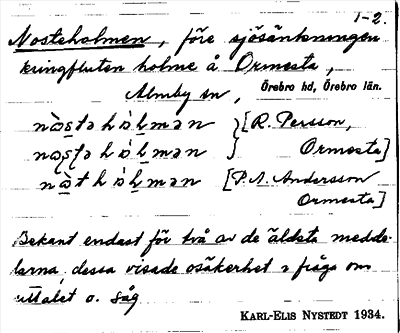 1-2.
Nosteholmen, före sjösänkningen
kringfluten holme å Ormesta,
Almby sn, Örebro hd, Örebro län.
nå̀stəhȯ̀lmən } [R. Persson,
nåsʃəhȯ̀lmən } Ormesta]
nå̀thȯ̀lmən [P. A. Andersson
Ormesta]
Bekant endast för två av de äldsta medde-
larna, dessa visade osäkerhet i fråga om
uttalet o. såg
KARL-ELIS NYSTEDT 1934.